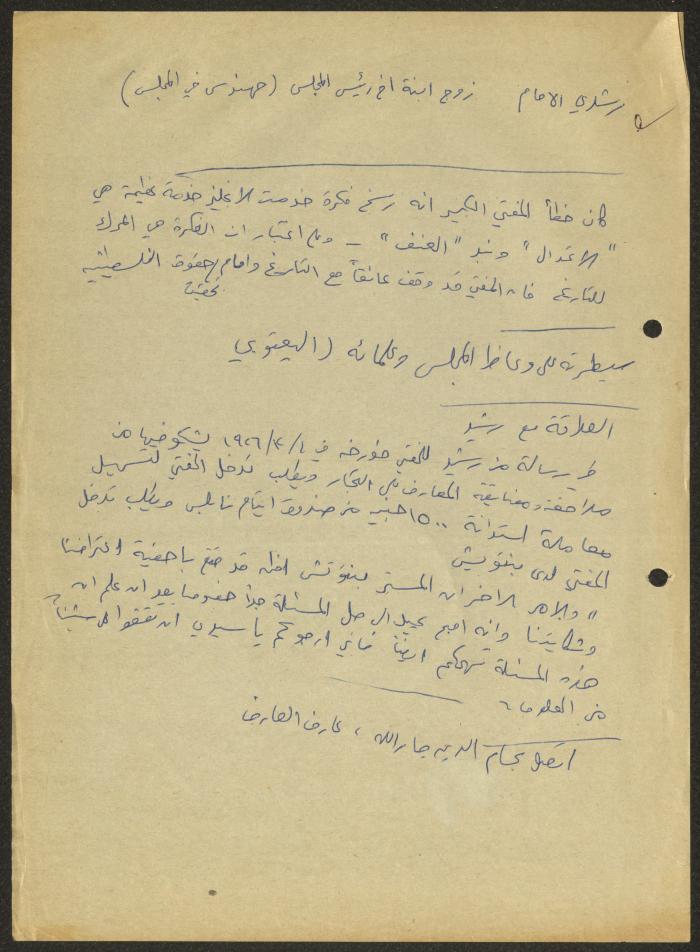 رشدي الامام زوج ابنة اخ رئيس المجلس (مهندس في المجلس)
كان خطأ المفتي الكبير انه رسخ فكرة خدمت الانجليز خدمة عظيمة هي
"الاعتدال" ونبذ "العنف" – وعلى اعتبار ان الفكرة هي المحرك
للتاريخ فان المفتي قد وقف عائقاً مع التاريخ وامام تحقيق حقوق الفلسطينيين
سيطرته على وعاظ المجلس وعلمائه (اليعقوبي
العلاقة مع رشيد
رسالة من رشيد للمفتي مؤرخة في ١٩٢٦/٢/١ يشكو فيها من
ملاحقة ومضايقة المعارف على التجار ويطلب تدخل المفتي لتسهيل
معاملة استدانة ١٥٠٠ جنيه من صندوق ايتام نابلس ويطلب تدخل
المفتي لدى بنتويش
"والامر الاخر ان المستر بنتوتش اظنه قد قنع باحقية اعتراضنا
وشكايتنا وانه اصبح يميل الى حل المسئلة جداً خصوصا بعد ان علم ان
هذه المسئلة تهمكم ايضاً فاني ارجوكم يا سيدي ان تققوا له شيئاً
من المعلومات
اتصل بحسام الدين جار الله ، عارف العارف